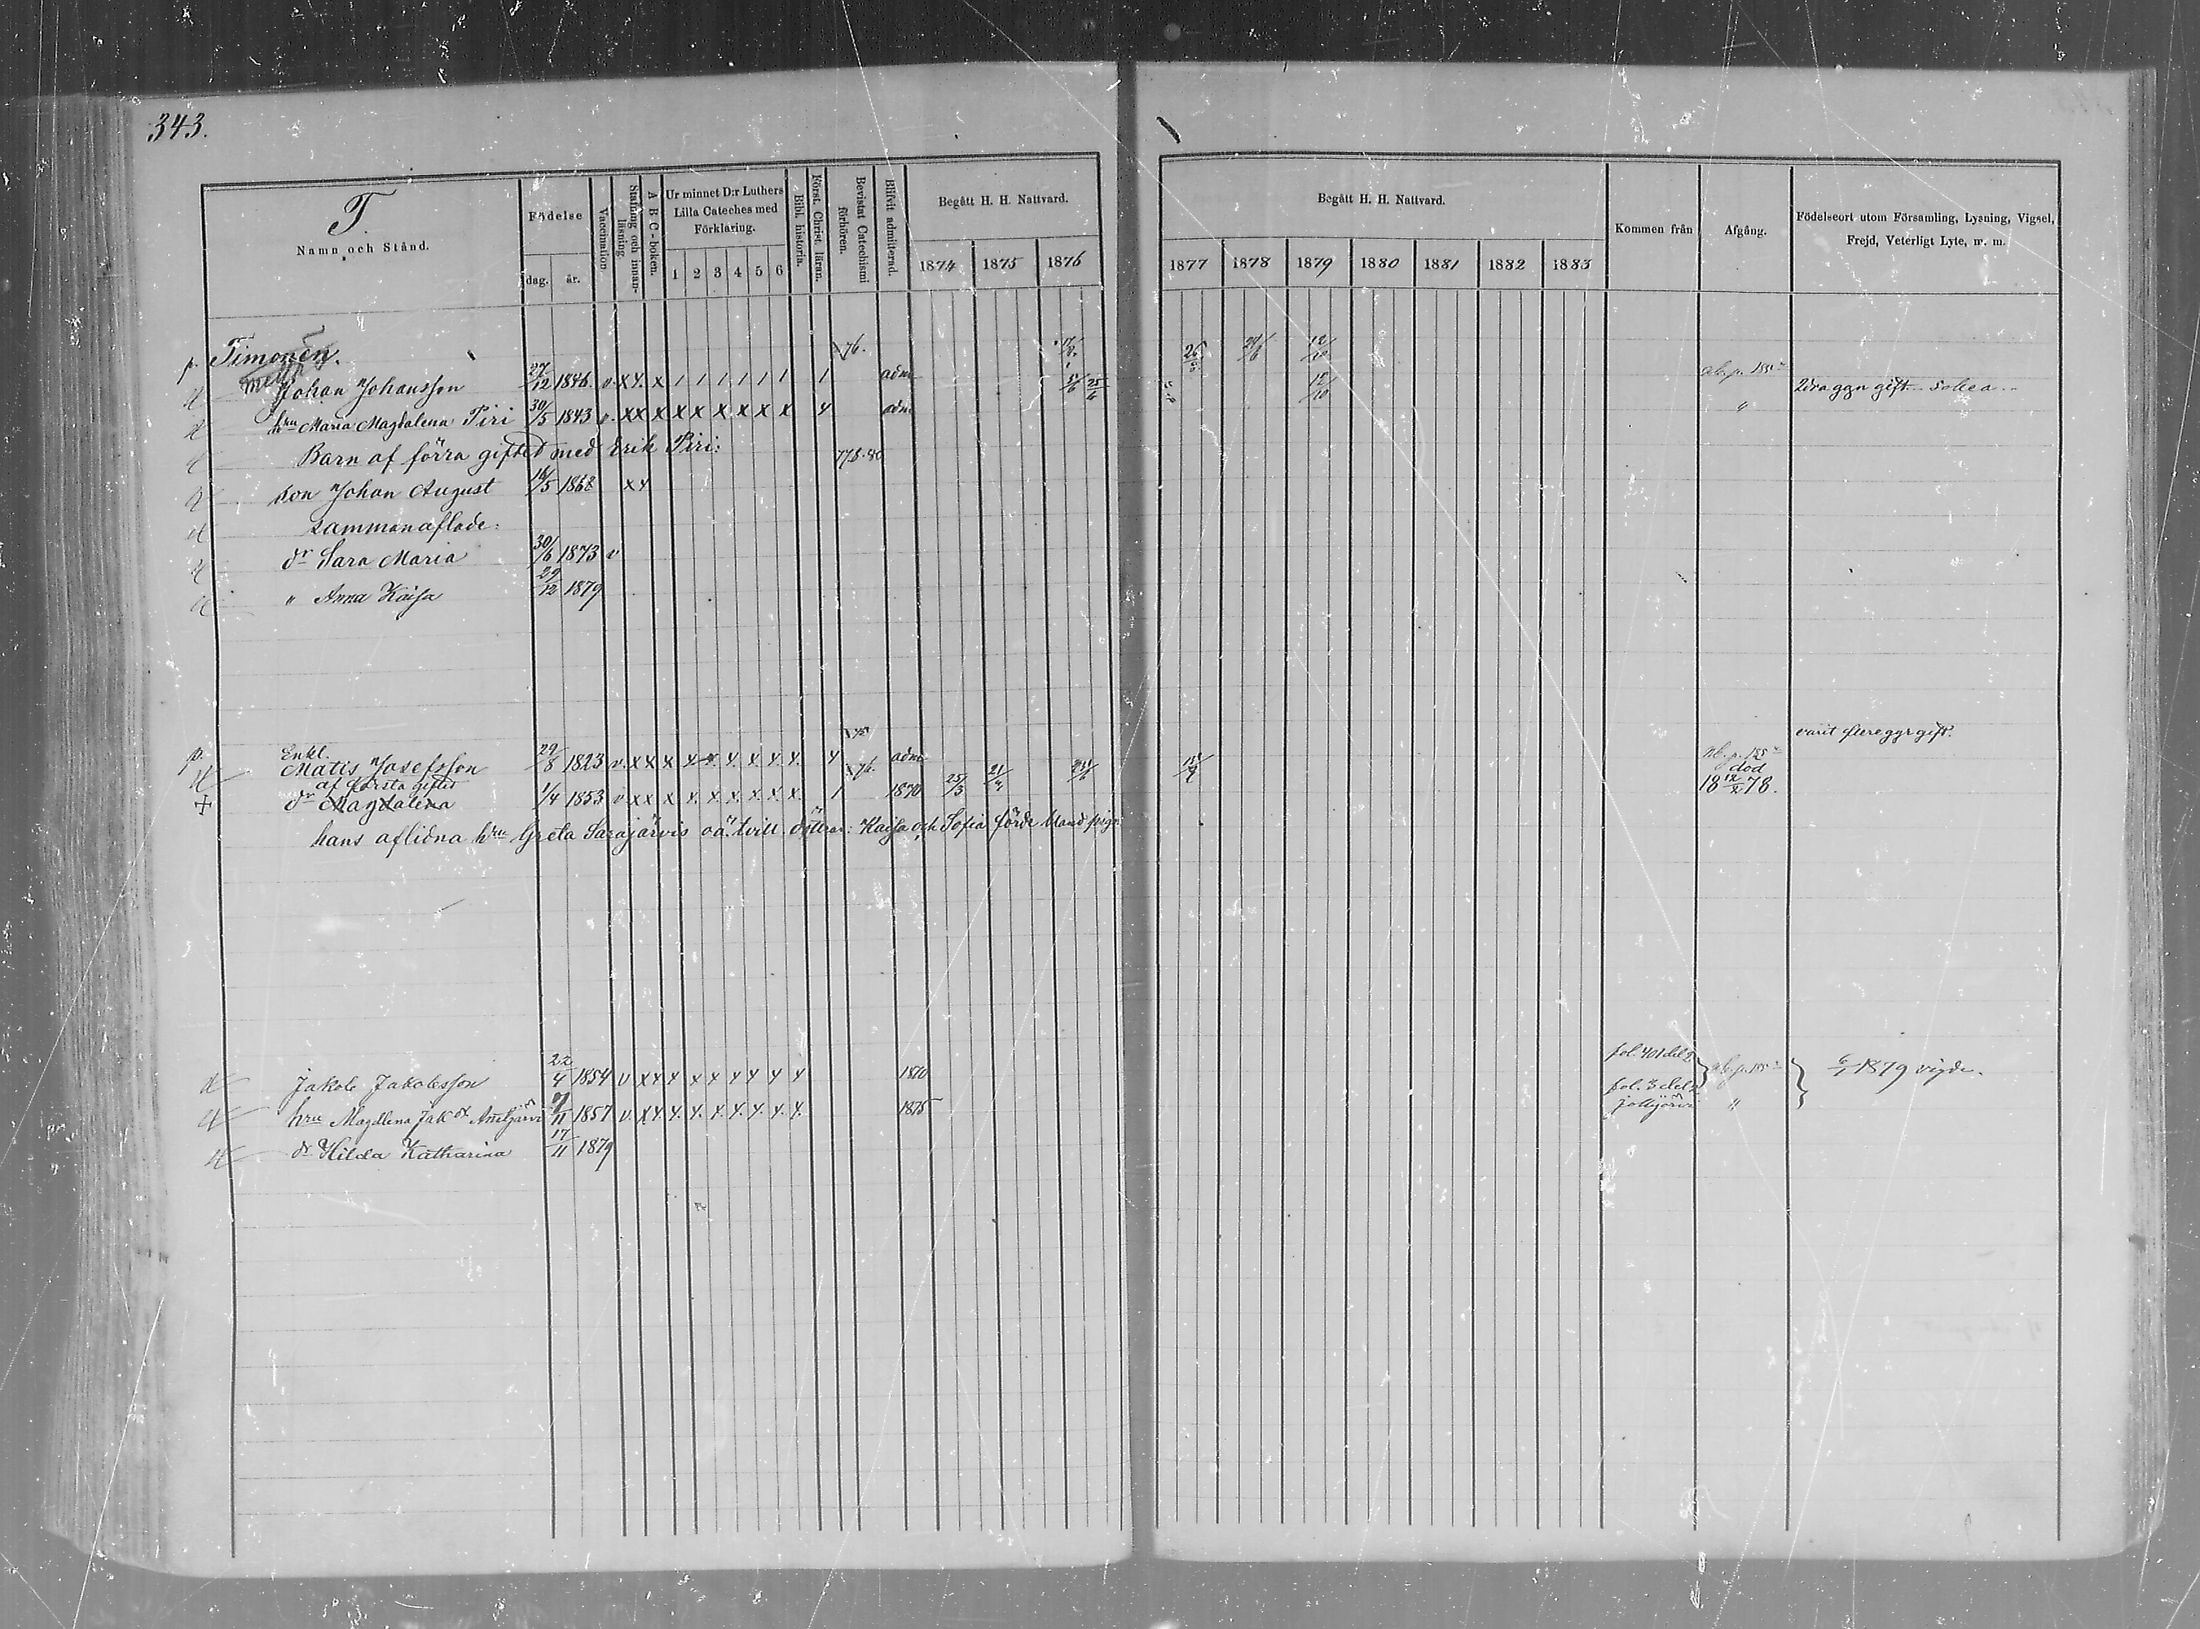 343.
T.
Namn och Stånd.
Födelse
dag. år.
Vaccination.
Stafning och innanläsning.
A B C-boken.
Ur minnet D:r Luthers Lilla Cateches med Förklaring.
1 2 3 4 5 6
Bibl. historia.
Först. Christ. läran.
Bevistat Catechismi förhören.
Blifvit admitterad.
Begått H. H. Nattvard.
1874 1875 1876
Begått H. H. Nattvard.
1877 1878 1879 1880 1881 1882 1883
Kommen från
Afgång.
Födelseort utom Församling, Lysning, Vigsel, Frejd, Veterligt Lyte, m. m.
p. Timonen. 76. 12/10
Johan Johansson 27/12 1846. v. x x. x 1 1 1 1 1 1 1 adm 12/10
hru Maria Magdalena Piri 30/5 1843 v. x x x x x x x x x 4 adm "
Barn af förra giftet med Erik Piri:
son Johan August 18/5 1868 x x
sammanaflade:
dr Sara Maria 30/6 1873 v
" Anna Kajsa 29/12 1879
varit flere ggr gift.
p. Enkl.
Matis Josefsson 29/8 1823 v. x x x x. x. x. x. x. x. 4 76. adm
af första giftet
dr Magdalena 1/4 1853 v x x x x. x. x. x. x. x. 1 1870 25/3 död 18 12/2 78.
hans aflidna hru Greta Sarajärvis oä. tvill. döttrar: Kajsa och Sofia förde bland pigor
Jakob Jakobsson 22/4 1854 v x x x x x x x x x 1870 fol. 401 del 2 6/1 1879 vigde.
hru Magdlena Jak dr 7/11 1857 v. x x. x. x. x. x. x. x. x. 1875 "
dr Hilda Katharina 17/11 1879